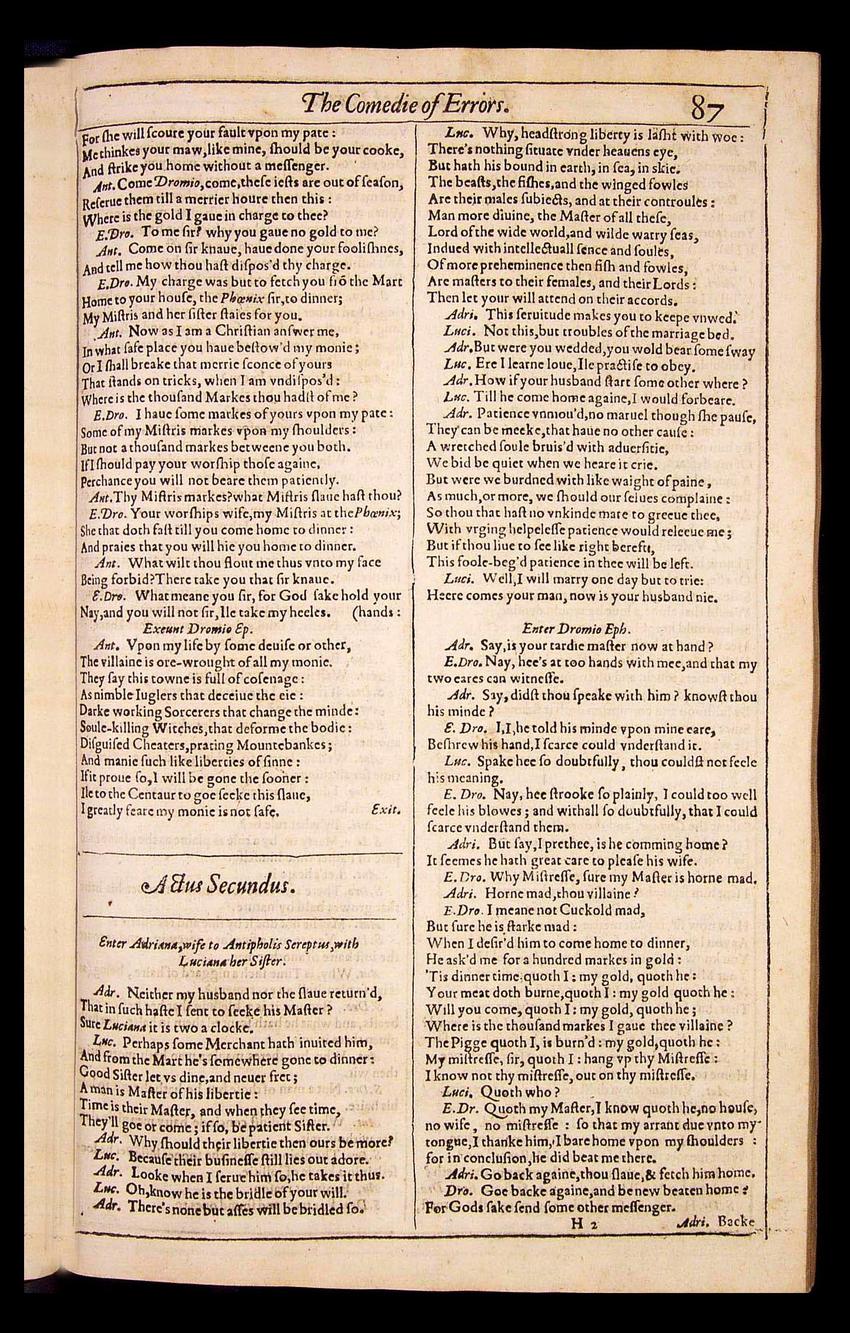 The Comedie of Errors.
87
For ſhe will ſcoure your fault vpon my pate:
Me thinkes your maw, like mine, ſhould be your cooke,
And ſtrike you home without a meſſenger.
Ant. Come Dromio, come, theſe ieſts are out of ſeaſon,
Reſerue them till a merrier houre then this:
Where is the gold I gaue in charge to thee?
E.Dro. To me ſir? why you gaue no gold to me?
Ant. Come on ſir knaue, haue done your fooliſhnes,
And tell me how thou haſt diſpos'd thy charge.
E.Dro. My charge was but to fetch you frõ the Mart
Home to your houſe, the Phœnix ſir, to dinner;
My Miſtris and her ſiſter ſtaies for you.
Ant. Now as I am a Chriſtian anſwer me,
In what ſafe place you haue beſtow'd my monie;
Or I ſhall breake that merrie ſconce of yours
That ſtands on tricks, when I am vndiſpos'd:
Where is the thouſand Markes thou hadſt of me?
E.Dro. I haue ſome markes of yours vpon my pate:
Some of my Miſtris markes vpon my ſhoulders:
But not a thouſand markes betweene you both.
If I ſhould pay your worſhip thoſe againe,
Perchance you will not beare them patiently.
Ant. Thy Miſtris markes? what Miſtris ſlaue haſt thou?
E.Dro. Your worſhips wife, my Miſtris at the Phœnix;
She that doth faſt till you come home to dinner:
And praies that you will hie you home to dinner.
Ant. What wilt thou flout me thus vnto my face
Being forbid? There take you that ſir knaue.
E.Dro. What meane you ſir, for God ſake hold your
Nay, and you will not ſir, Ile take my heeles. (hands:
Exeunt Dromio Ep.
Ant. Vpon my life by ſome deuiſe or other,
The villaine is ore-wrought of all my monie.
They ſay this towne is full of coſenage:
As nimble Iuglers that deceiue the eie:
Darke working Sorcerers that change the minde:
Soule-killing Witches, that deforme the bodie:
Diſguiſed Cheaters, prating Mountebankes;
And manie ſuch like liberties of ſinne:
If it proue ſo, I will be gone the ſooner:
Ile to the Centaur to goe ſeeke this ſlaue,
I greatly feare my monie is not ſafe. Exit.
Actus Secundus.
Enter Adriana, wife to Antipholis Sereptus, with
Luciana her Siſter.
Adr. Neither my husband nor the ſlaue return'd,
That in ſuch haſte I ſent to ſeeke his Maſter?
Sure Luciana it is two a clocke.
Luc. Perhaps ſome Merchant hath inuited him,
And from the Mart he's ſomewhere gone to dinner:
Good Siſter let vs dine, and neuer fret;
A man is Maſter of his libertie:
Time is their Maſter, and when they ſee time,
They'll goe or come; if ſo, be patient Siſter.
Adr. Why ſhould their libertie then ours be more?
Luc. Becauſe their buſineſſe ſtill lies out adore.
Adr. Looke when I ſerue him ſo, he takes it thus.
Luc. Oh, know he is the bridle of your will.
Adr. There's none but aſſes will be bridled ſo.
Luc. Why, headſtrong liberty is laſht with woe:
There's nothing ſituate vnder heauens eye,
But hath his bound in earth, in ſea, in skie.
The beaſts, the fiſhes, and the winged fowles
Are their males ſubiects, and at their controules:
Man more diuine, the Maſter of all theſe,
Lord of the wide world, and wilde watry ſeas,
Indued with intellectuall ſence and ſoules,
Of more preheminence then fiſh and fowles,
Are maſters to their females, and their Lords:
Then let your will attend on their accords.
Adri. This ſeruitude makes you to keepe vnwed.
Luci. Not this, but troubles of the marriage bed.
Adr. But were you wedded, you wold bear ſome ſway
Luc. Ere I learne loue, Ile practiſe to obey.
Adr. How if your husband ſtart ſome other where?
Luc. Till he come home againe, I would forbeare.
Adr. Patience vnmou'd, no maruel though ſhe pauſe,
They can be meeke, that haue no other cauſe:
A wretched ſoule bruis'd with aduerſitie,
We bid be quiet when we heare it crie.
But were we burdned with like waight of paine,
As much, or more, we ſhould our ſelues complaine:
So thou that haſt no vnkinde mate to greeue thee,
With vrging helpeleſſe patience would releeue me;
But if thou liue to ſee like right bereft,
This foole-beg'd patience in thee will be left.
Luci. Well, I will marry one day but to trie:
Heere comes your man, now is your husband nie.
Enter Dromio Eph.
Adr. Say, is your tardie maſter now at hand?
E.Dro. Nay, hee's at too hands with mee, and that my
two eares can witneſſe.
Adr. Say, didſt thou ſpeake with him? knowſt thou
his minde?
E. Dro. I, I, he told his minde vpon mine eare,
Beſhrew his hand, I ſcarce could vnderſtand it.
Luc. Spake hee ſo doubtfully, thou couldſt not feele
his meaning.
E. Dro. Nay, hee ſtrooke ſo plainly, I could too well
feele his blowes; and withall ſo doubtfully, that I could
ſcarce vnderſtand them.
Adri. But ſay, I prethee, is he comming home?
It ſeemes he hath great care to pleaſe his wife.
E. Dro. Why Miſtreſſe, ſure my Maſter is horne mad.
Adri. Horne mad, thou villaine?
E.Dro. I meane not Cuckold mad,
But ſure he is ſtarke mad:
When I deſir'd him to come home to dinner,
He ask'd me for a hundred markes in gold:
'Tis dinner time, quoth I: my gold, quoth he:
Your meat doth burne, quoth I: my gold quoth he:
Will you come, quoth I: my gold, quoth he;
Where is the thouſand markes I gaue thee villaine?
The Pigge quoth I, is burn'd: my gold, quoth he:
My miſtreſſe, ſir, quoth I: hang vp thy Miſtreſſe:
I know not thy miſtreſſe, out on thy miſtreſſe.
Luci. Quoth who?
E.Dr. Quoth my Maſter, I know quoth he, no houſe,
no wife, no miſtreſſe: ſo that my arrant due vnto my
tongue, I thanke him, I bare home vpon my ſhoulders:
for in concluſion, he did beat me there.
Adri. Go back againe, thou ſlaue, & fetch him home.
Dro. Goe backe againe, and be new beaten home?
For Gods ſake ſend ſome other meſſenger.
H 2 Adri. Backe